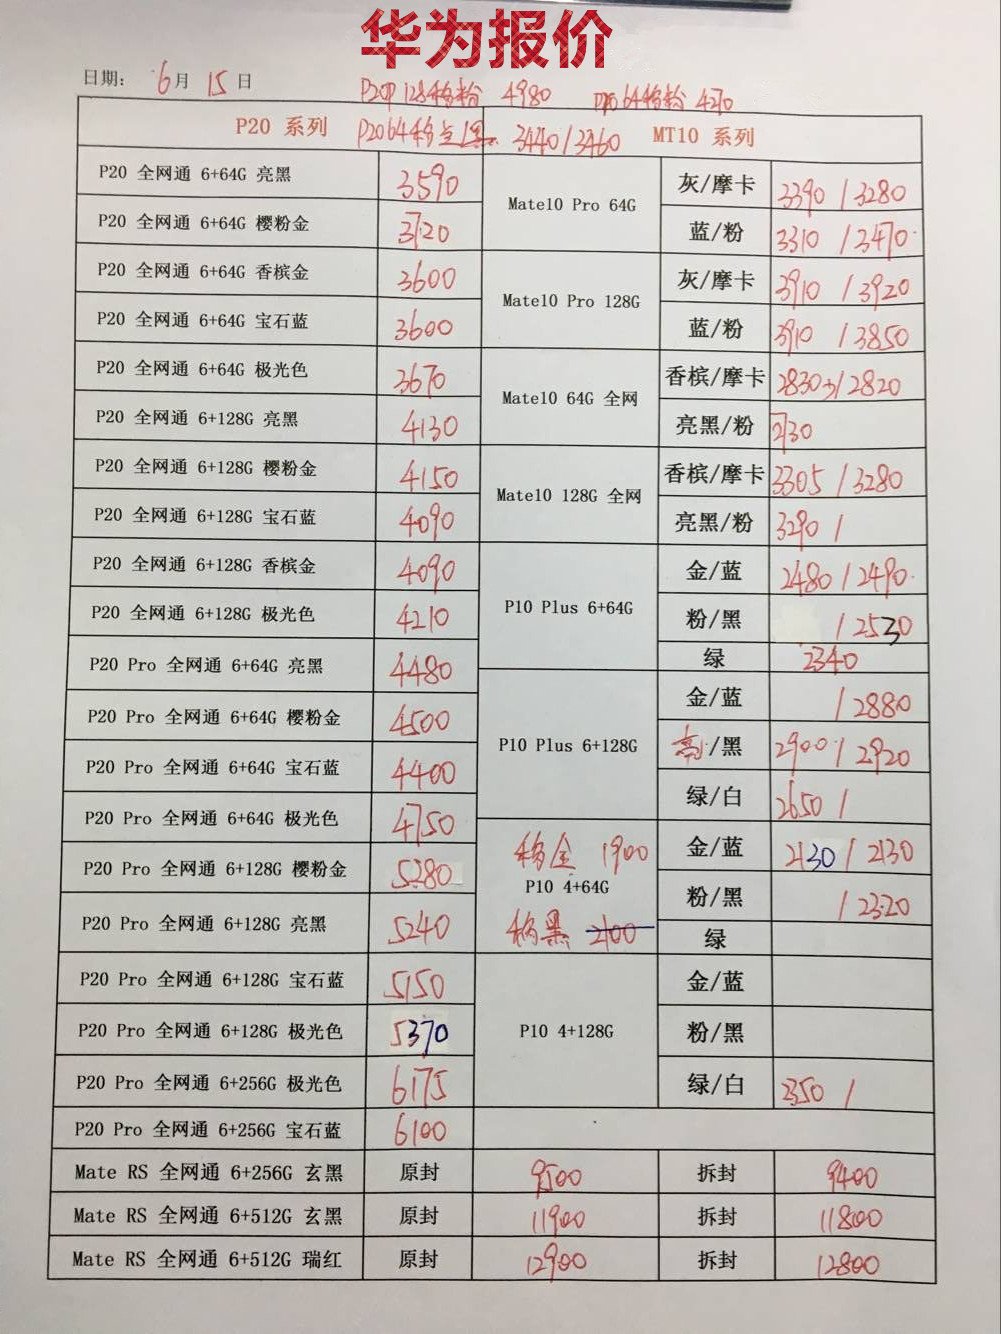 华为报价
日期: 6月 15日
P20P 128移粉 4980 64移粉 4270
P20 系列 P20 64移 3440/3460 MT10 系列
P20 全网通 6+64G 亮黑 3590
P20 全网通 6+64G 樱粉金 3720
P20 全网通 6+64G 香槟金 3600
P20 全网通 6+64G 宝石蓝 3600
P20 全网通 6+64G 极光色 3670
P20 全网通 6+128G 亮黑 4130
P20 全网通 6+128G 樱粉金 4150
P20 全网通 6+128G 宝石蓝 4090
P20 全网通 6+128G 香槟金 4090
P20 全网通 6+128G 极光色 4210
P20 Pro 全网通 6+64G 亮黑 4480
P20 Pro 全网通 6+64G 樱粉金 4500
P20 Pro 全网通 6+64G 宝石蓝 4400
P20 Pro 全网通 6+64G 极光色 4750
P20 Pro 全网通 6+128G 樱粉金 5280
P20 Pro 全网通 6+128G 亮黑 5240
P20 Pro 全网通 6+128G 宝石蓝 5150
P20 Pro 全网通 6+128G 极光色 5370
P20 Pro 全网通 6+256G 极光色 6175
P20 Pro 全网通 6+256G 宝石蓝 6100
Mate10 Pro 64G
灰/摩卡 3390 / 3280
蓝/粉 3310 / 3470
Mate10 Pro 128G
灰/摩卡 3910 / 3920
蓝/粉 3910 / 3850
Mate10 64G 全网
香槟/摩卡 2830 / 2820
亮黑/粉
Mate10 128G 全网
香槟/摩卡 3305 / 3280
亮黑/粉 3290 /
P10 Plus 6+64G
金/蓝 2480 / 2490
粉/黑 / 2530
绿 2340
P10 Plus 6+128G
金/蓝 / 2880
/黑 2900 / 2920
绿/白 2650 /
移金 1900
P10 4+64G
移黑 2100
金/蓝 2130 / 2130
粉/黑 / 2320
绿
P10 4+128G
金/蓝
粉/黑
绿/白 2350 /
Mate RS 全网通 6+256G 玄黑 原封 9500 拆封 9400
Mate RS 全网通 6+512G 玄黑 原封 11900 拆封 11800
Mate RS 全网通 6+512G 瑞红 原封 12900 拆封 12800